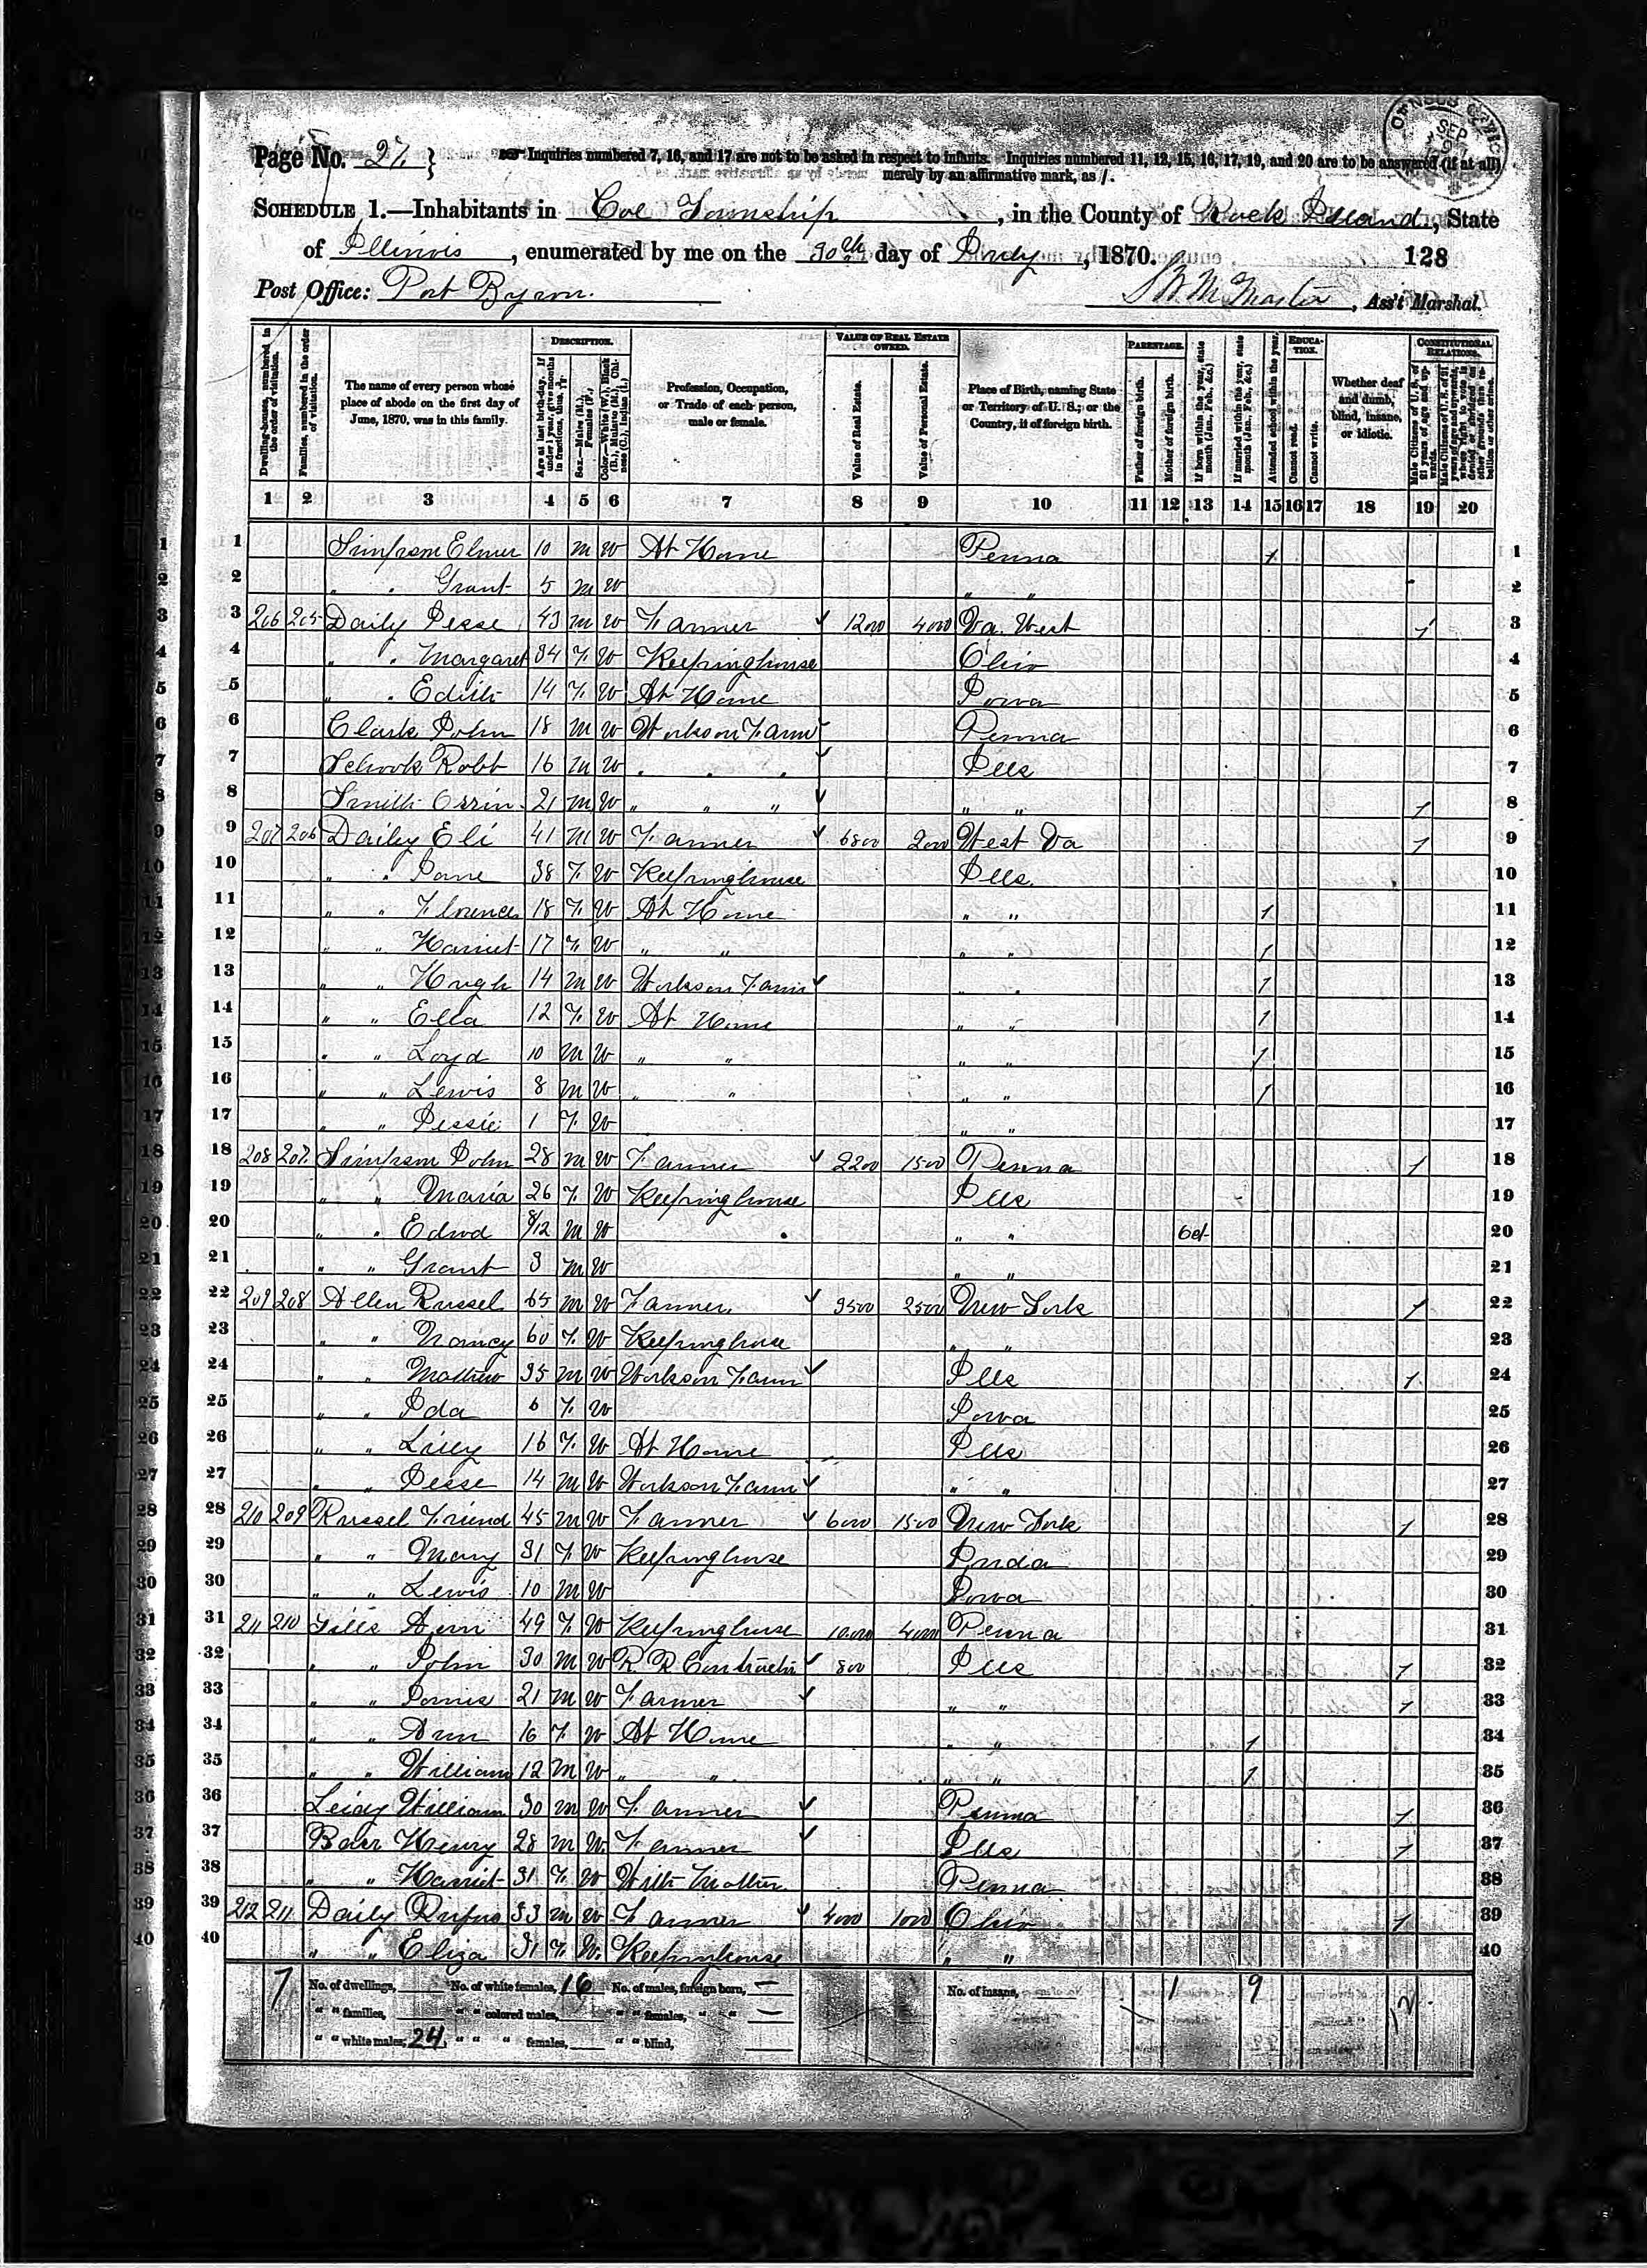 Page No. 27
Inquiries numbered 7, 16, and 17 are not to be asked in respect to infants. Inquiries numbered 11, 12, 15, 16, 17, 19, and 20 are to be answered (if at all)
merely by an affirmative mark, as /.
SCHEDULE 1.—Inhabitants in Coe Township, in the County of Rock Island, State
of Illinois, enumerated by me on the 30th day of July, 1870. 128
Post Office: Port Byron. Ass't Marshal.
Dwelling-houses, numbered in the order of visitation.
Families, numbered in the order of visitation.
The name of every person whose place of abode on the first day of June, 1870, was in this family.
DESCRIPTION.
Age at last birth-day. If under 1 year, give months in fractions, thus,
Sex.—Males (M.), Females (F.)
Color.—White (W.), Black (B.), Mulatto (M.), Chinese (C.), Indian (I.)
Profession, Occupation, or Trade of each person, male or female.
VALUE OF REAL ESTATE OWNED.
Value of Real Estate.
Value of Personal Estate.
Place of Birth, naming State or Territory of U. S.; or the Country, if of foreign birth.
PARENTAGE.
Father of foreign birth.
Mother of foreign birth.
If born within the year, state month (Jan., Feb., &c.)
If married within the year, state month (Jan., Feb., &c.)
Attended school within the year.
EDUCATION.
Cannot read.
Cannot write.
Whether deaf and dumb, blind, insane, or idiotic.
CONSTITUTIONAL RELATIONS.
Male Citizens of U. S. of 21 years of age and upwards.
1 2 3 4 5 6 7 8 9 10 11 12 13 14 15 16 17 18 19 20
1 1 Simpson Elmer 10 M W At Home Penna 1 1
2 2 " " Grant 5 M W " " 2
3 3 206 205 Daily Jesse 43 M W Farmer 12000 4000 Va. West 1 3
4 4 " " Margaret 34 F W Keeping house Ohio 4
5 5 " " Edith 14 F W At Home Iowa 5
6 6 Clark John 18 M W Works on Farm Penna 6
7 7 Schook Robt 16 M W " " " Ills 7
8 8 Smith Orrin 21 M W " " " " " 1 8
9 9 207 206 Dailey Eli 41 M W Farmer 6800 2000 West Va 1 9
10 10 " " Jane 38 F W Keeping house Ills. 10
11 11 " " Florence 18 F W At Home " " 1 11
12 12 " " Harriet 17 F W " " " " 1 12
13 13 " " Hugh 14 M W Works on Farm " " 1 13
14 14 " " Ella 12 F W At Home " " 1 14
15 15 " " Loyd 10 M W " " " " 1 15
16 16 " " Lewis 8 M W " " " " 1 16
17 17 " " Jessie 1 F W " " 17
18 18 208 207 Simpson John 28 M W Farmer 2200 1500 Penna 1 18
19 19 " " Maria 26 F W Keeping house Ills 19
20 20 " " Edwd 8/12 M W " " Oct 20
21 21 " " Grant 3 M W " " 21
22 22 209 208 Allen Russel 65 M W Farmer 3500 2500 New York 1 22
23 23 " " Nancy 60 F W Keeping house " " 23
24 24 " " Mathew 35 M W Works on Farm Ills 1 24
25 25 " " Ida 6 F W Iowa 25
26 26 " " Lucy 16 F W At Home Ills 26
27 27 " " Jesse 14 M W Works on Farm " " 27
28 28 210 209 Russel Friend 45 M W Farmer 6000 1500 New York 1 28
29 29 " " Mary 31 F W Keeping house Inda 29
30 30 " " Lewis 10 M W Iowa 30
31 31 211 210 Ann 49 F W Keeping house 10000 4000 Penna 31
32 32 " " John 30 M W R R Contractor 800 Ills 1 32
33 33 " " 21 M W Farmer " " 1 33
34 34 " " Ann 16 F W At Home " " 1 34
35 35 " " William 12 M W " " " " 1 35
36 36 Leidy William 30 M W Farmer Penna 1 36
37 37 Barr Henry 28 M W Farmer Ills 1 37
38 38 " " Harriet 31 F W With Mother Penna 38
39 39 212 211 Daily Rufus 33 M W Farmer 4000 1000 Ohio 1 39
40 40 " " Eliza 31 F W Keeping house " " 40
7 No. of dwellings, No. of white females, 16 No. of males, foreign born, — No. of insane, 1 9 12
" " families, " " colored males, " " females, " " —
" " white males, 24 " " " females, " " blind,